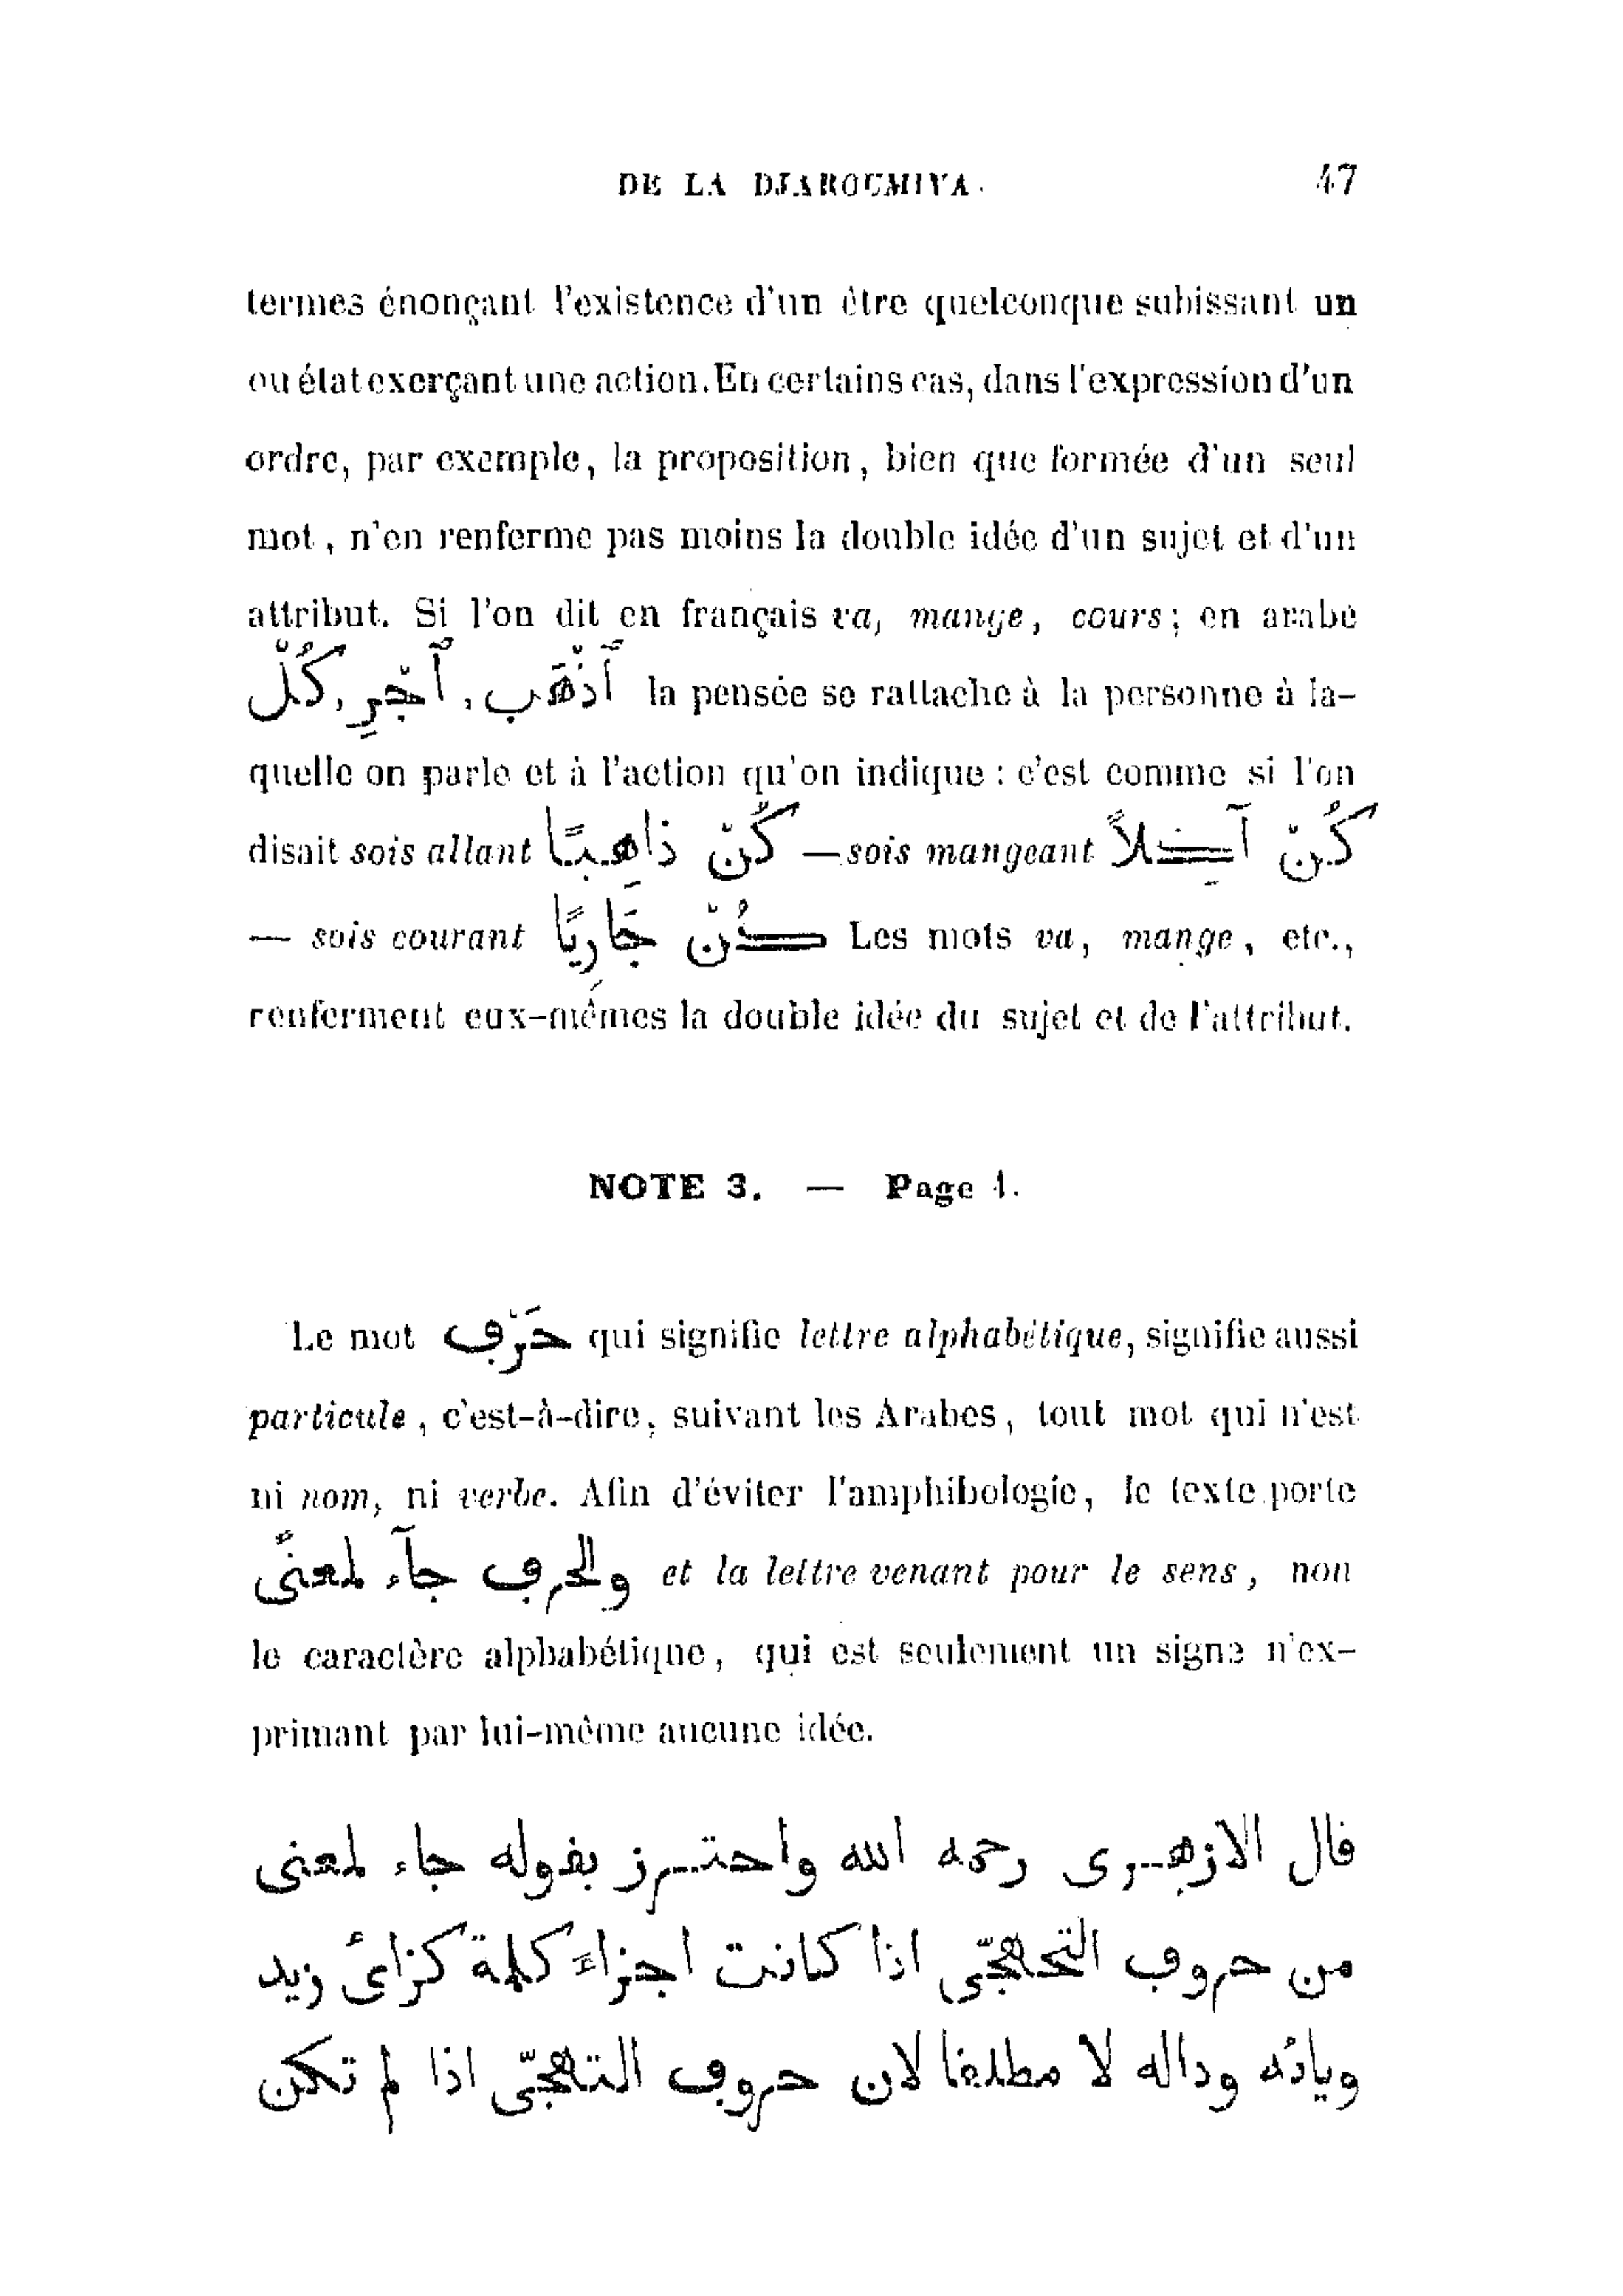 DE LA DJAROUMIYA. 47
termes énonçant l'existence d'un être quelconque subissant un
ou état exerçant une action. En certains cas, dans l'expression d'un
ordre, par exemple, la proposition, bien que formée d'un seul
mot, n'en renferme pas moins la double idée d'un sujet et d'un
attribut. Si l'on dit en français va, mange, cours; en arabe
آذْهَبْ, آجْرِ, كُلْ la pensée se rattache à la personne à la-
quelle on parle et à l'action qu'on indique : c'est comme si l'on
disait sois allant كُنْ ذَاهِبًا — sois mangeant كُنْ آكِلاً
— sois courant كُنْ جَارِيًا Les mots va, mange, etc.,
renferment eux-mêmes la double idée du sujet et de l'attribut.
NOTE 3. — Page 1.
Le mot حَرْڢ qui signifie lettre alphabétique, signifie aussi
particule, c'est-à-dire, suivant les Arabes, tout mot qui n'est
ni nom, ni verbe. Afin d'éviter l'amphibologie, le texte porte
والحرڢ جآء لمعنًى et la lettre venant pour le sens, non
le caractère alphabétique, qui est seulement un signe n'ex-
primant par lui-même aucune idée.
فال الازهرى رحمه الله واحترز بفوله جاء لمعنى
من حروڢ التهجّى اذا كانت اجزاءَ كلمة كزائ زيد
ويائه وداله لا مطلفا لان حروڢ التهجّى اذا لم تكن